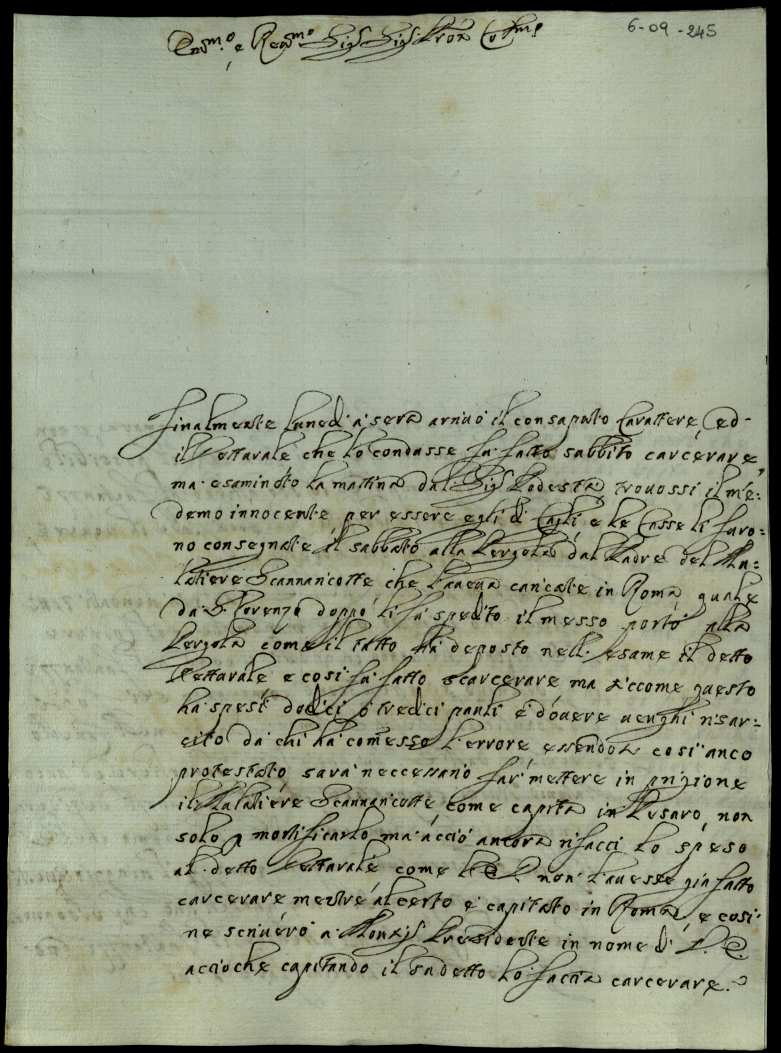 6-09-245
Em.mo e Rev.mo Sig.r Sig.r Pron Col.mo
Finalmente lunedì à sera arrivò il consaputo Carattere, ed
il Vetturale che lo condusse fù fatto subbito carcerare,
ma esaminato la mattina dal Sig.r Podestà trovossi il me:
demo innocente per essere egli di Cagli e le Casse li furo:
no consegnate il sabbato alla Pergola dal Padre del Mu:
lattiere Scannanicotte che l'aveva caricate in Roma quale
da S. Lorenzo doppo li fù spedito il messo portò alla
Pergola come il tutto hà deposto nell'esame il detto
Vetturale e così fù fatto scarcerare ma siccome questo
hà spesi dodici ò tredici pauli è dovere venghi risar:
cito da chi hà comesso l'errore essendosi così anco
protestato sarà neccessario far mettere in prigione
il Mulattiere Scannanicotte come capita in Pesaro non
solo p mortificarlo ma acciò ancora rifacci lo speso
al detto Vetturale come l'E. V. non l'avesse già fatto
carcerare mentre al certo è capitato in Roma, e così
ne scriverò a Monsig.r Presidente in nome di V. E.
accioche capitando il sudetto lo faccia carcerare.